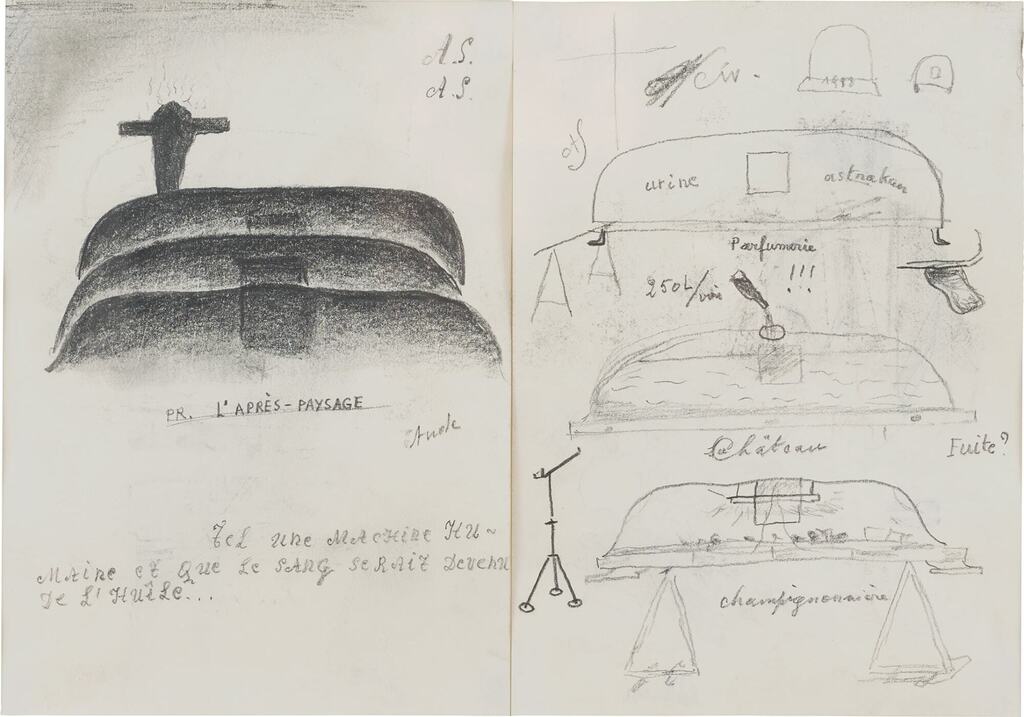 A.S.
A.S.
PR. L'APRÈS-PAYSAGE
Aude
Tel une MACHINE HU-
MAINE et QUE Le SANG SeRAiT Devenu
De L'HUÊLe...
1488
urine
astrakan
Parfumerie
250L/vin
!!!
Le Château
Fuite?
champignonnière